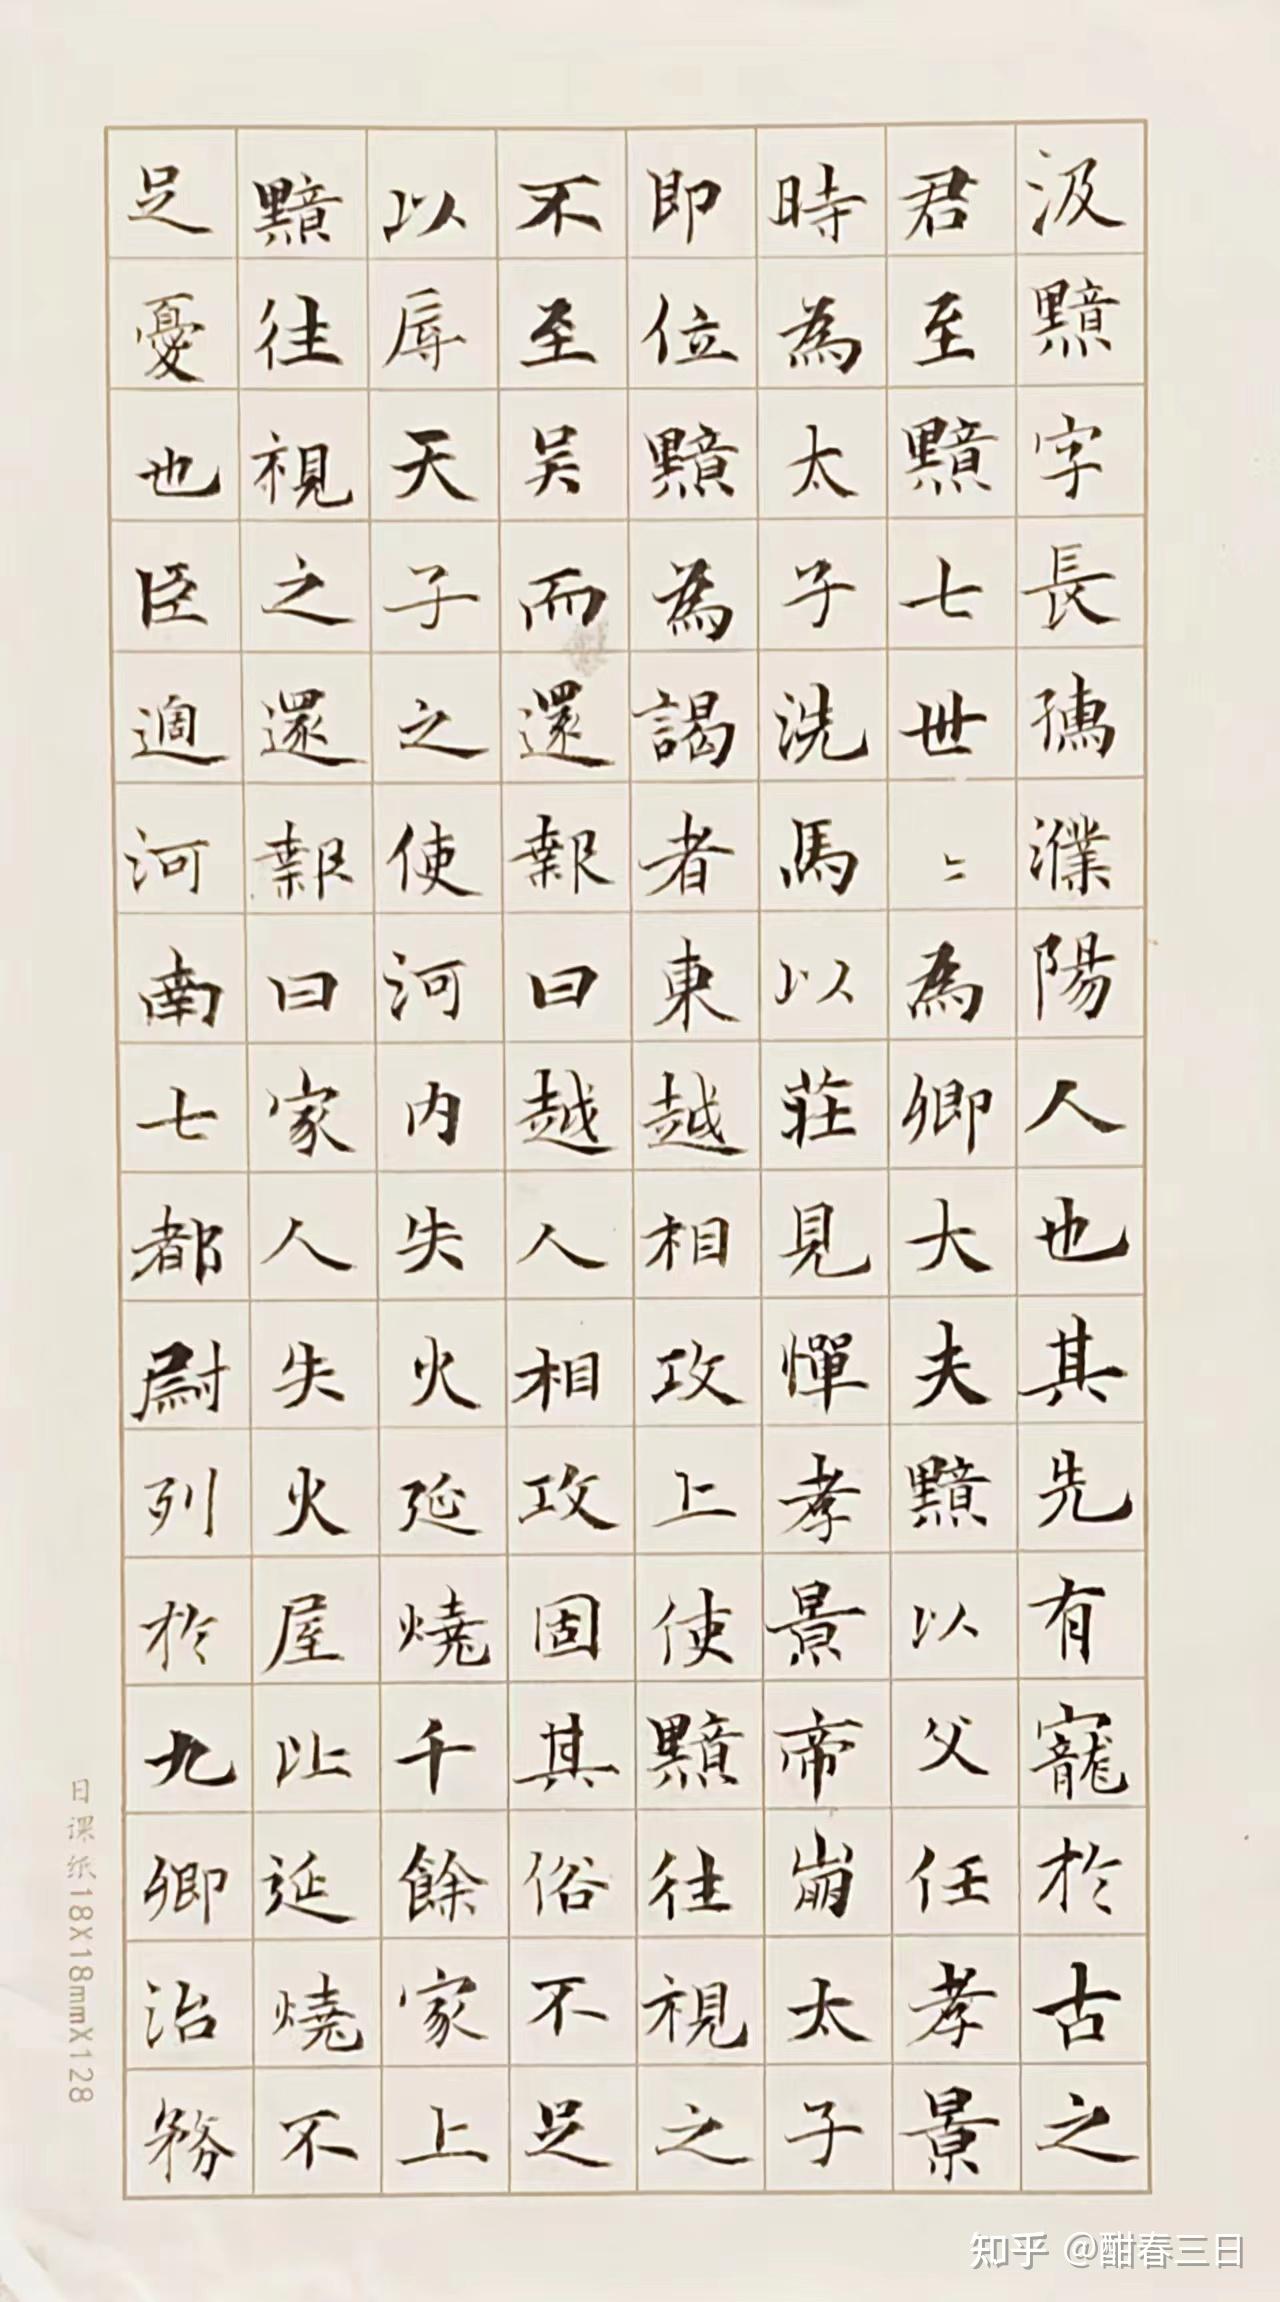 汲黯字長孺濮陽人也其先有寵於古之
君至黯七世〻為卿大夫黯以父任孝景
時為太子洗馬以莊見憚孝景帝崩太子
即位黯為謁者東越相攻上使黯往視之
不至吴而還報曰越人相攻固其俗不足
以辱天子之使河内失火延燒千餘家上
黯往視之還報曰家人失火屋比延燒不
足憂也臣過河南七都尉列於九卿治務
日课纸18X18mmX128
知乎 @酣春三日